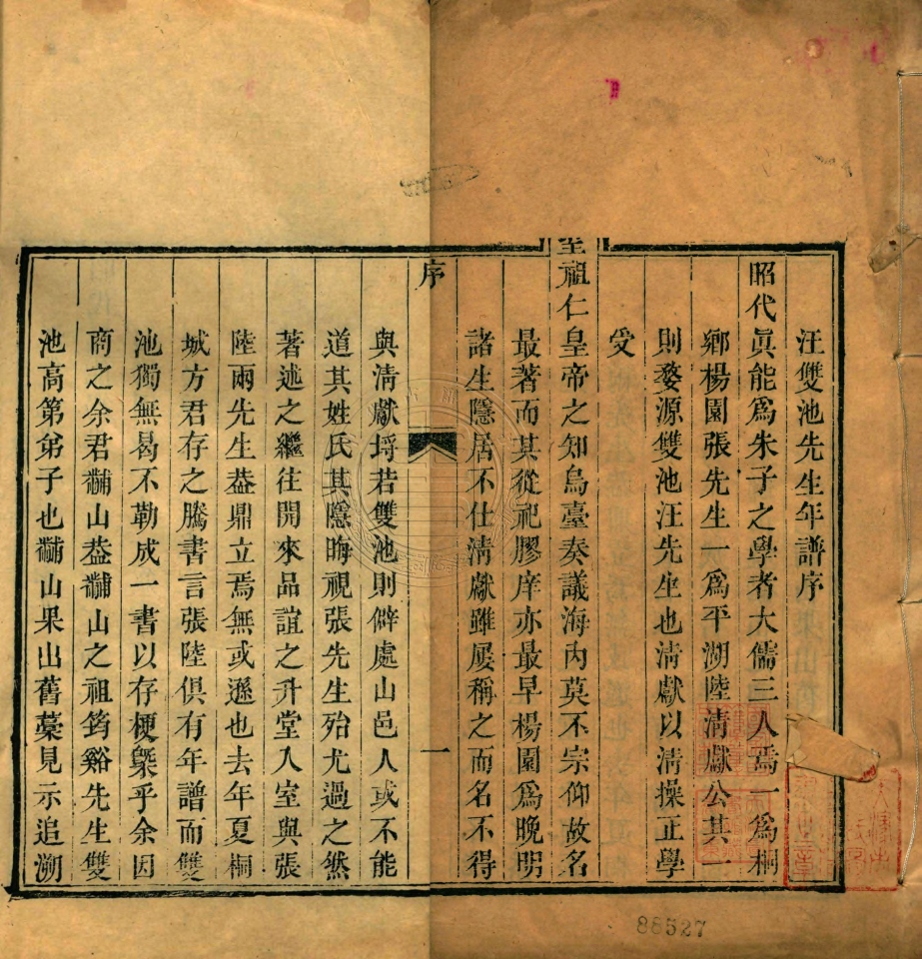 汪雙池先生年譜序
昭代眞能爲朱子之學者大儒三人焉一爲桐
鄉楊園張先生一爲平湖陸清獻公其一
則婺源雙池汪先生也清獻以清操正學
受
聖祖仁皇帝之知烏臺奏議海內莫不宗仰故名
最著而其從祀膠庠亦最早楊園爲晚明
諸生隱居不仕清獻雖屢稱之而名不得
序 一
與清獻埓若雙池則僻處山邑人或不能
道其姓氏其隱晦視張先生殆尤過之然
著述之繼往開來品誼之升堂入室與張
陸兩先生葢鼎立焉無或遜也去年夏桐
城方君存之騰書言張陸俱有年譜而雙
池獨無曷不勒成一書以存梗槩乎余因
商之余君黼山葢黼山之祖筠谿先生雙
池高第弟子也黼山果出舊藁見示追溯
88527